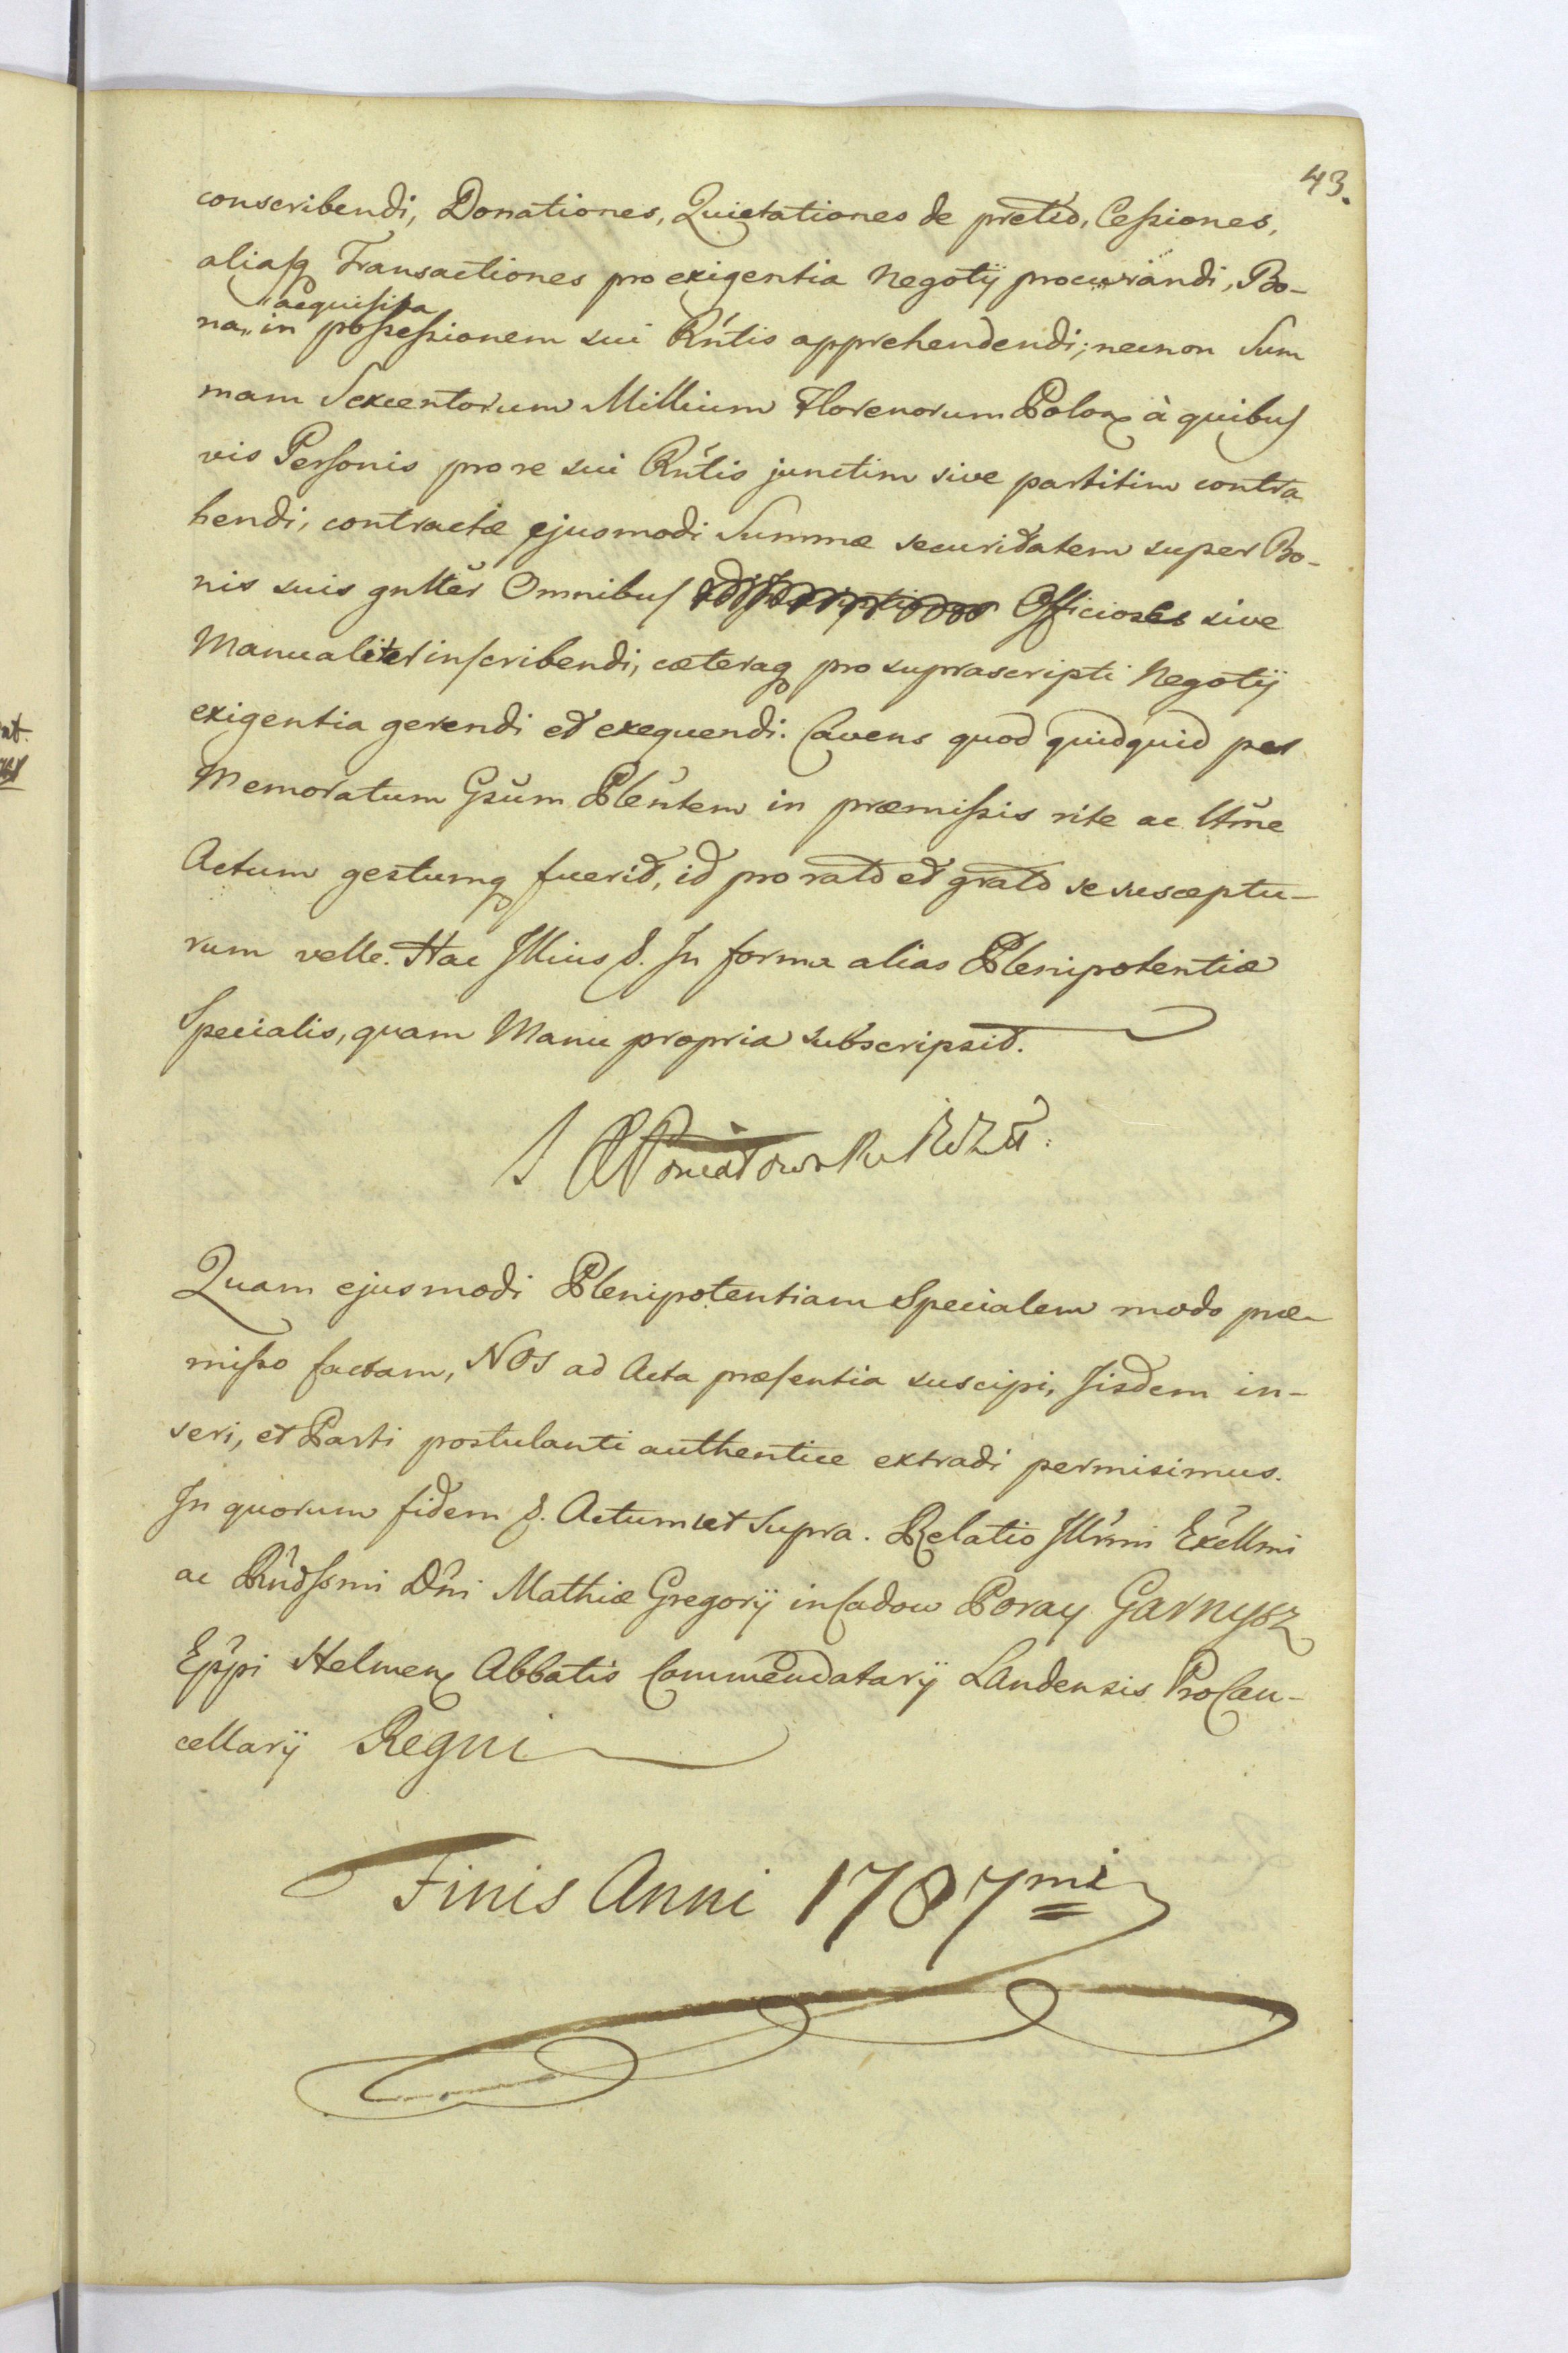 43.
conscribendi, Donationes, Quietationes de pretio, Ceſsiones,
aliaſq Transactiones pro exigentia Negotÿ procurandi, Bo-
acquiſita
na,, in poſseſsionem sui Rńtis apprehendendi; necnon Sum
mam Sexcentorum Millium Florenorum Polon à quibuſ
vis Perſonis pro re sui Rńtis junctim sive partitim contra
hendi, contractæ ejusmodi Summæ securitatem super Bo-
nis suis gnlter Omnibuſ Officiose sive
Manualiter inſcribendi, cæteraq pro suprascripti Negotÿ
exigentia gerendi et exequendi. Cavens quod quidquid per
Memoratum Gsum Plentem in præmiſsis rite ac ltme
Actum gestumq fuerit, id pro rato et grato se susceptu-
rum velle. Hac Illius &. In forma alias Plenipotentiæ
Specialis, quam Manu propria subscripsit.
Poniatowski
Quam ejusmodi Plenipotentiam Specialem modo præ-
miſso factam, NOS ad Acta præſentia suscipi, Iisdem in-
seri, et Parti postulanti authentice extradi permisimus.
In quorum fidem &. Actum ut Supra. Relatio Illrmi Excllmi
ac Rńdſsmi Dńi Mathiæ Gregorÿ in Cadow Poray Garnysz
Eppi Helmen Abbatis Commendatarÿ Landensis ProCan-
cellarÿ Regni
Finis Anni 1787mi